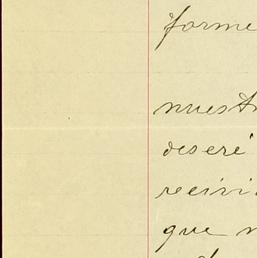 forme
nuestr
deseré
recivi
que n